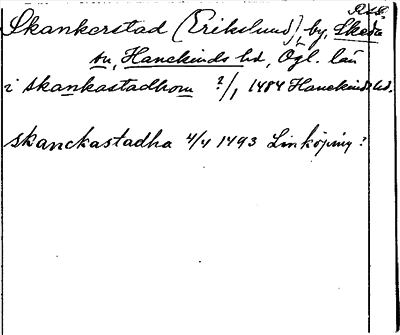 R.A.
Skankerstad (Erikslund), by, Skeda
sn, Hanekinds hd, Ögl. län
i skankastadhom ?/1 1484 Hanekinds hd.
skanckastadha 4/4 1493 Linköping?